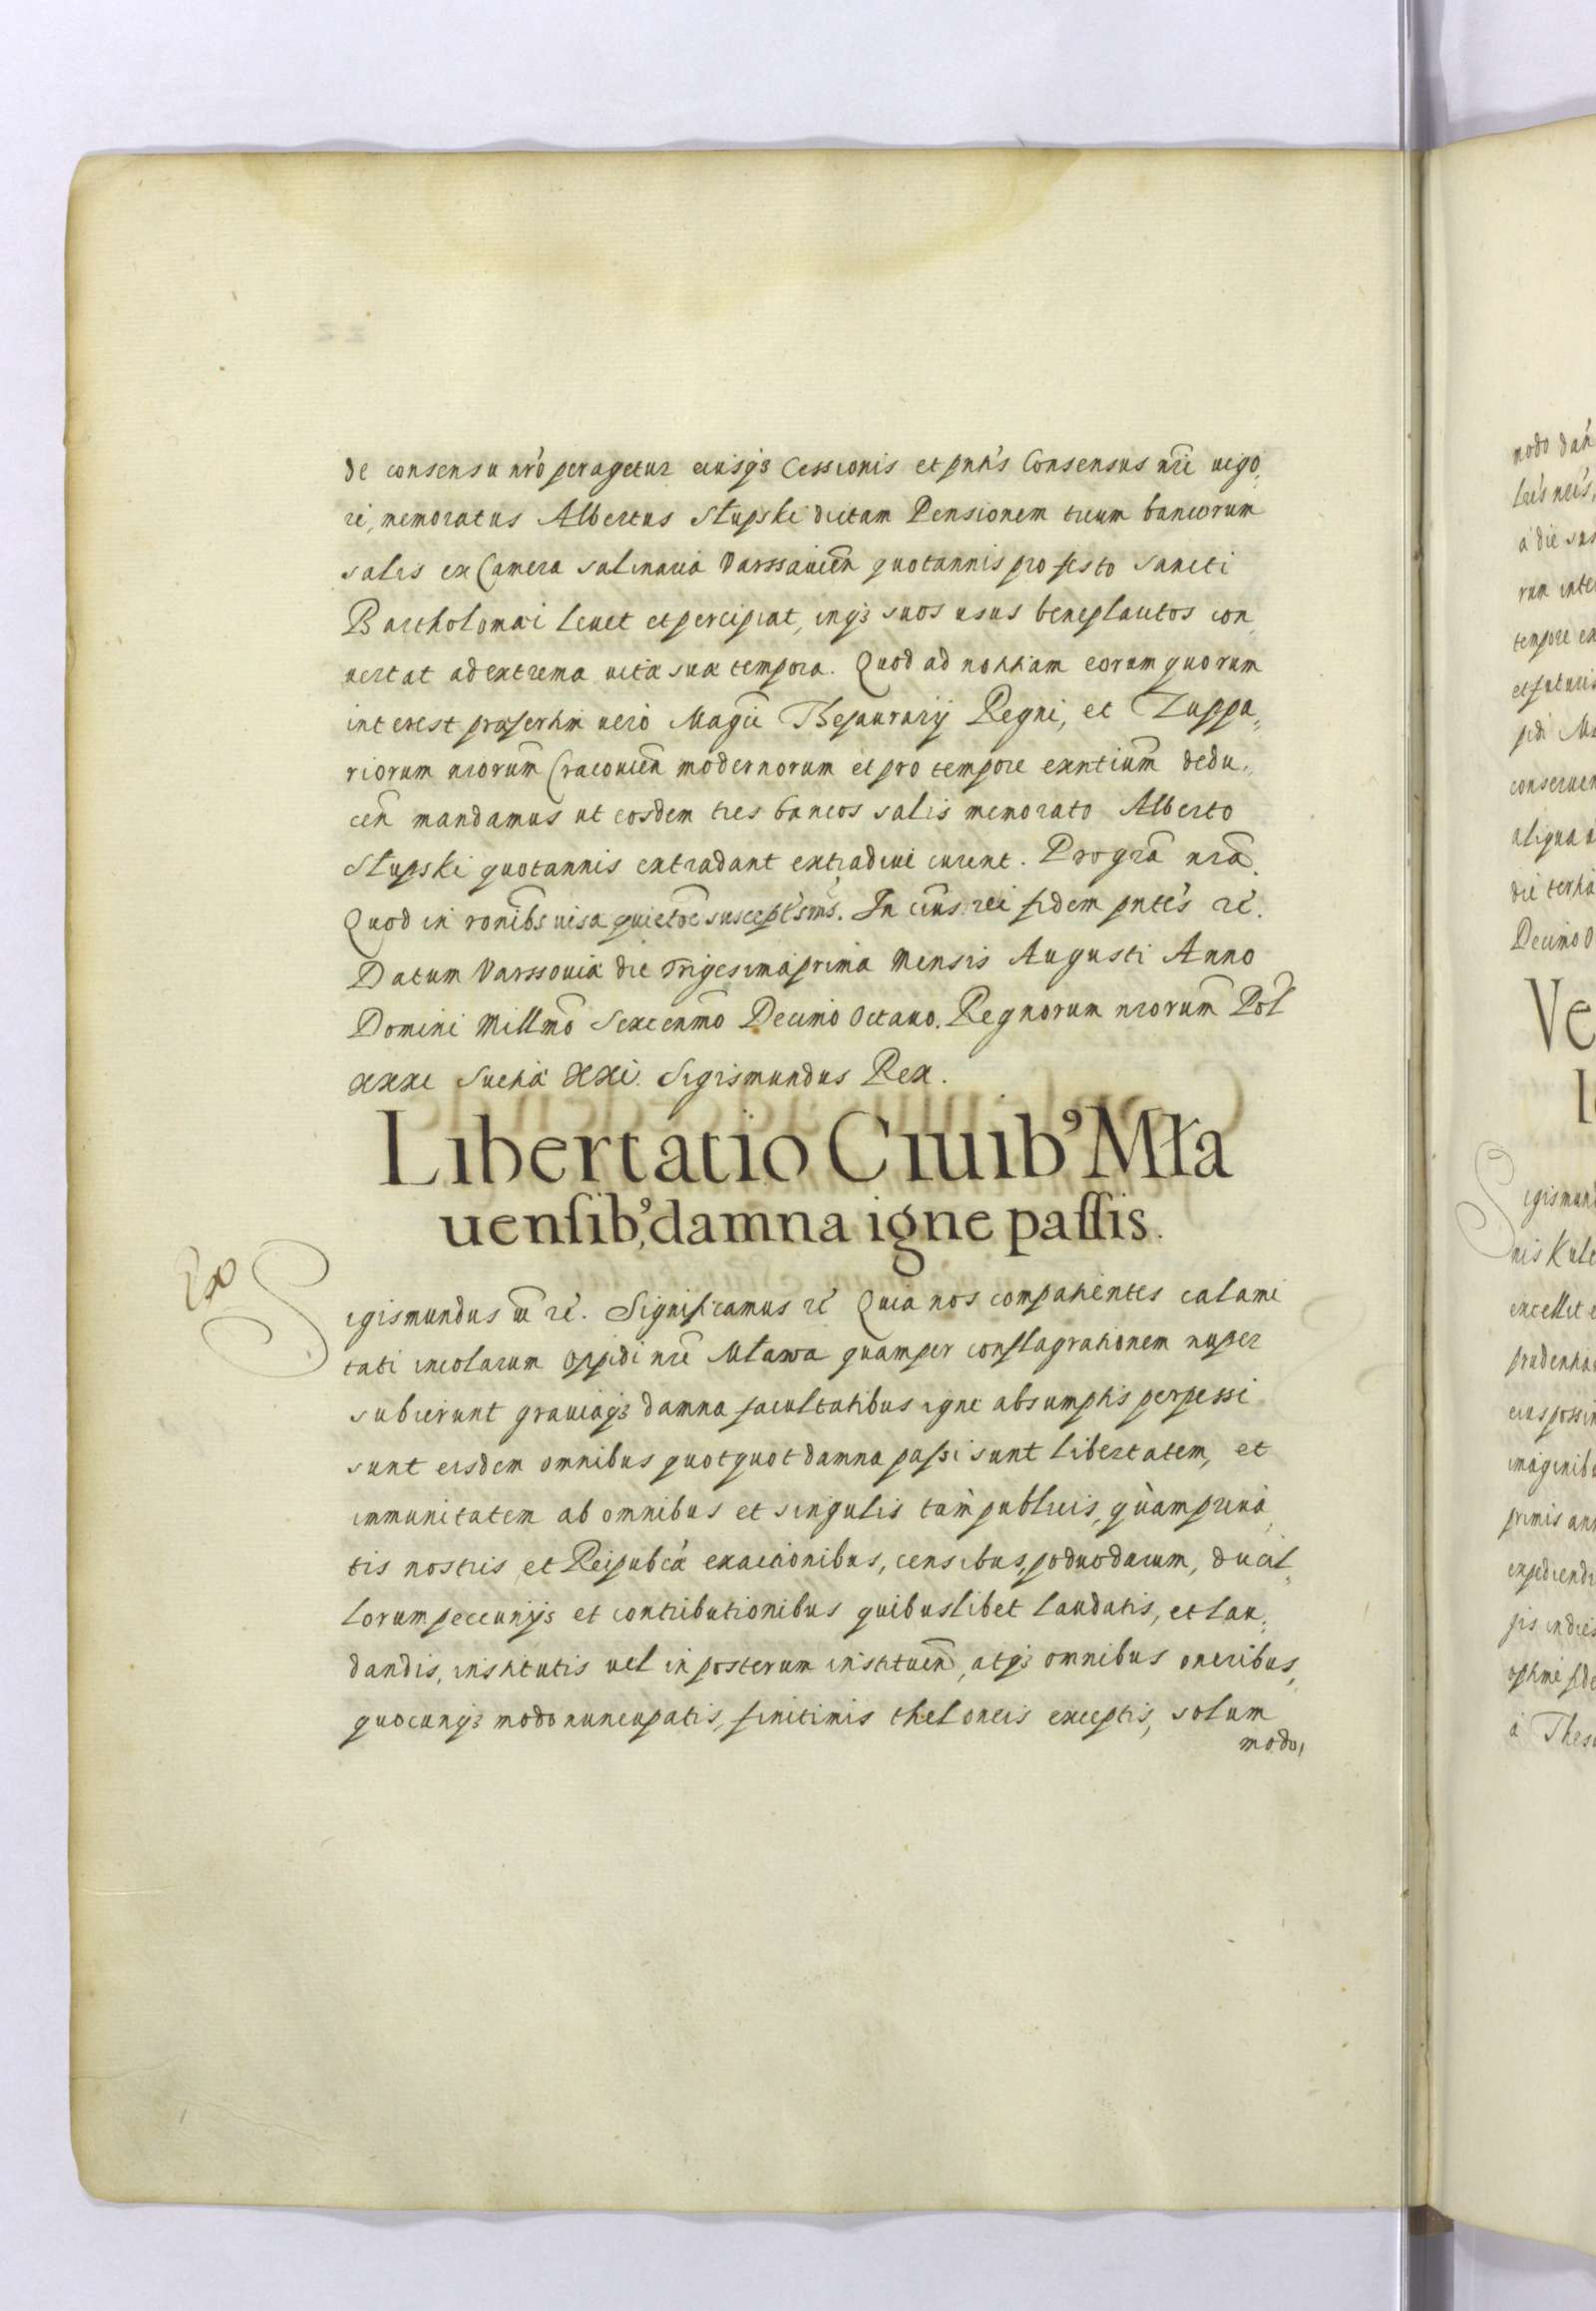 de consensu nrõ peragetur eiusq3 Cessionis et pntis Consensus nri uigo,
ri, memoratus Albertus Słupski dictam Pensionem trium bancorum
salis ex Camera salinaria Varssauien quotannis pro festo Sancti
Bartholomæi leuet et percipiat, inq3 suos usus beneplacitos con,
uertat ad extrema uitæ suæ tempora. Quod ad notitiam eorum quorum
interest præsertim uerò Magci Thesaurarij Regni, et Zuppa,
riorum nrorum Cracouien modernorum et pro tempore exntium dedu,
cen mandamus ut eosdem tres bancos salis memorato Alberto
Słupski quotannis extradant extradiue curent. Pro grã nrã.
Quod in ronibs uisa quietõe susceptsms. In cuius rei fidem pntes rć.
Datum Varssouiæ die Trigesima prima Mensis Augusti Anno
Domini Millmõ Sexcenmõ Decimo Octauo. Regnorum nrorum Pol
xxxi Suetiæ xxi. Sigismundus Rex.
Libertatio Ciuib' Mła
uensib', damna igne passis.
Sigismundus iii rć. Significamus rć Quia nos compatientes calami
tati incolarum oppidi nri Mława quam per conflagrationem nuper
subierunt grauiaq3 damna facultatibus igne absumptis perpessi
sunt eisdem omnibus quotquot damna passi sunt libertatem, et
immunitatem ab omnibus et singulis tàm publicis, quàm priua,
tis nostris et Reipubcæ exactionibus, censibus, poduodarum, ducil,
lorum peccunijs et contributionibus quibuslibet laudatis, et lau,
dandis, institutis uel in posterum instituen, atq3 omnibus oneribus,
quocunq3 modo nuncupatis, finitimis theloneis exceptis, solum
modo,